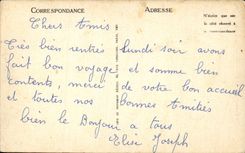 CORRESPONDANCE
ADRESSE
N'écrire que sur
le côté réservé à
la correspondance
Chers Amis
Très bien rentrés lundi soir avons
fait bon voyage et somme bien
contents, merci de votre bon accueil
et toutes nos bonnes Amitiés
bien le Bonjour à tous
Elise Joseph